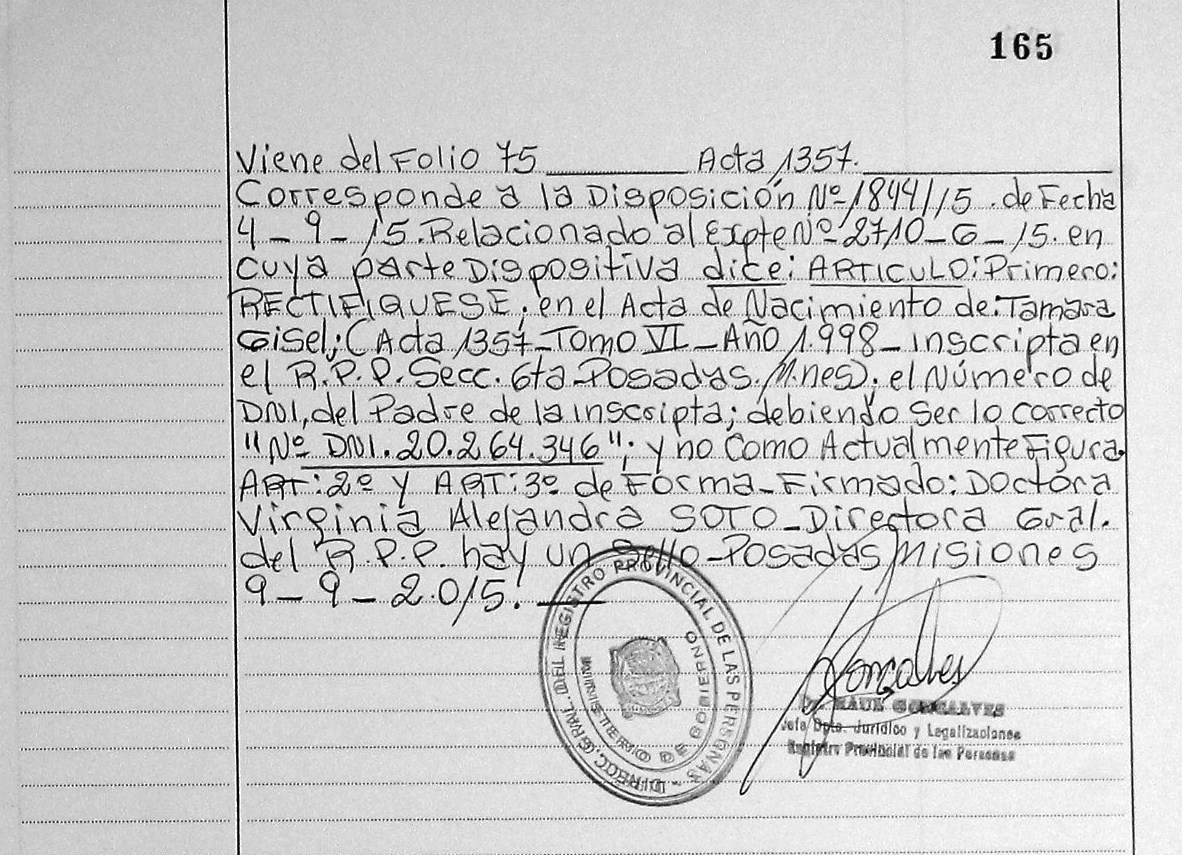 165
Viene del Folio 75 ______ Acta 1357.
Corresponde a la Disposición Nº 1844/15. de Fecha
4-9-15. Relacionado al Expte Nº 2710-G-15. en
cuya parte Dispositiva dice: ARTICULO: Primero:
RECTIFIQUESE; en el Acta de Nacimiento de: Tamara
Gisel; (Acta 1357-Tomo VI-Año 1.998-inscripta en
el R.P.P. Secc. 6ta-Posadas. Mnes); el Número de
DNI, del Padre de la inscripta; debiendo Ser lo correcto
"Nº DNI. 20.264.346"; y no Como Actualmente Figura
ART: 2º y ART: 3º de Forma-Firmado: Doctora
Virginia Alejandra SOTO-Directora Gral.
del R.P.P. hay un Sello-Posadas, Misiones
9-9-2.015.
DIRECC. GRAL. DEL REGISTRO PROVINCIAL DE LAS PERSONAS -
MINISTERIO DE GOBIERNO
Gonçalves
Dr. RAUL GONCALVES
Jefe Dpto. Jurídico y Legalizaciones
Registro Provincial de las Personas